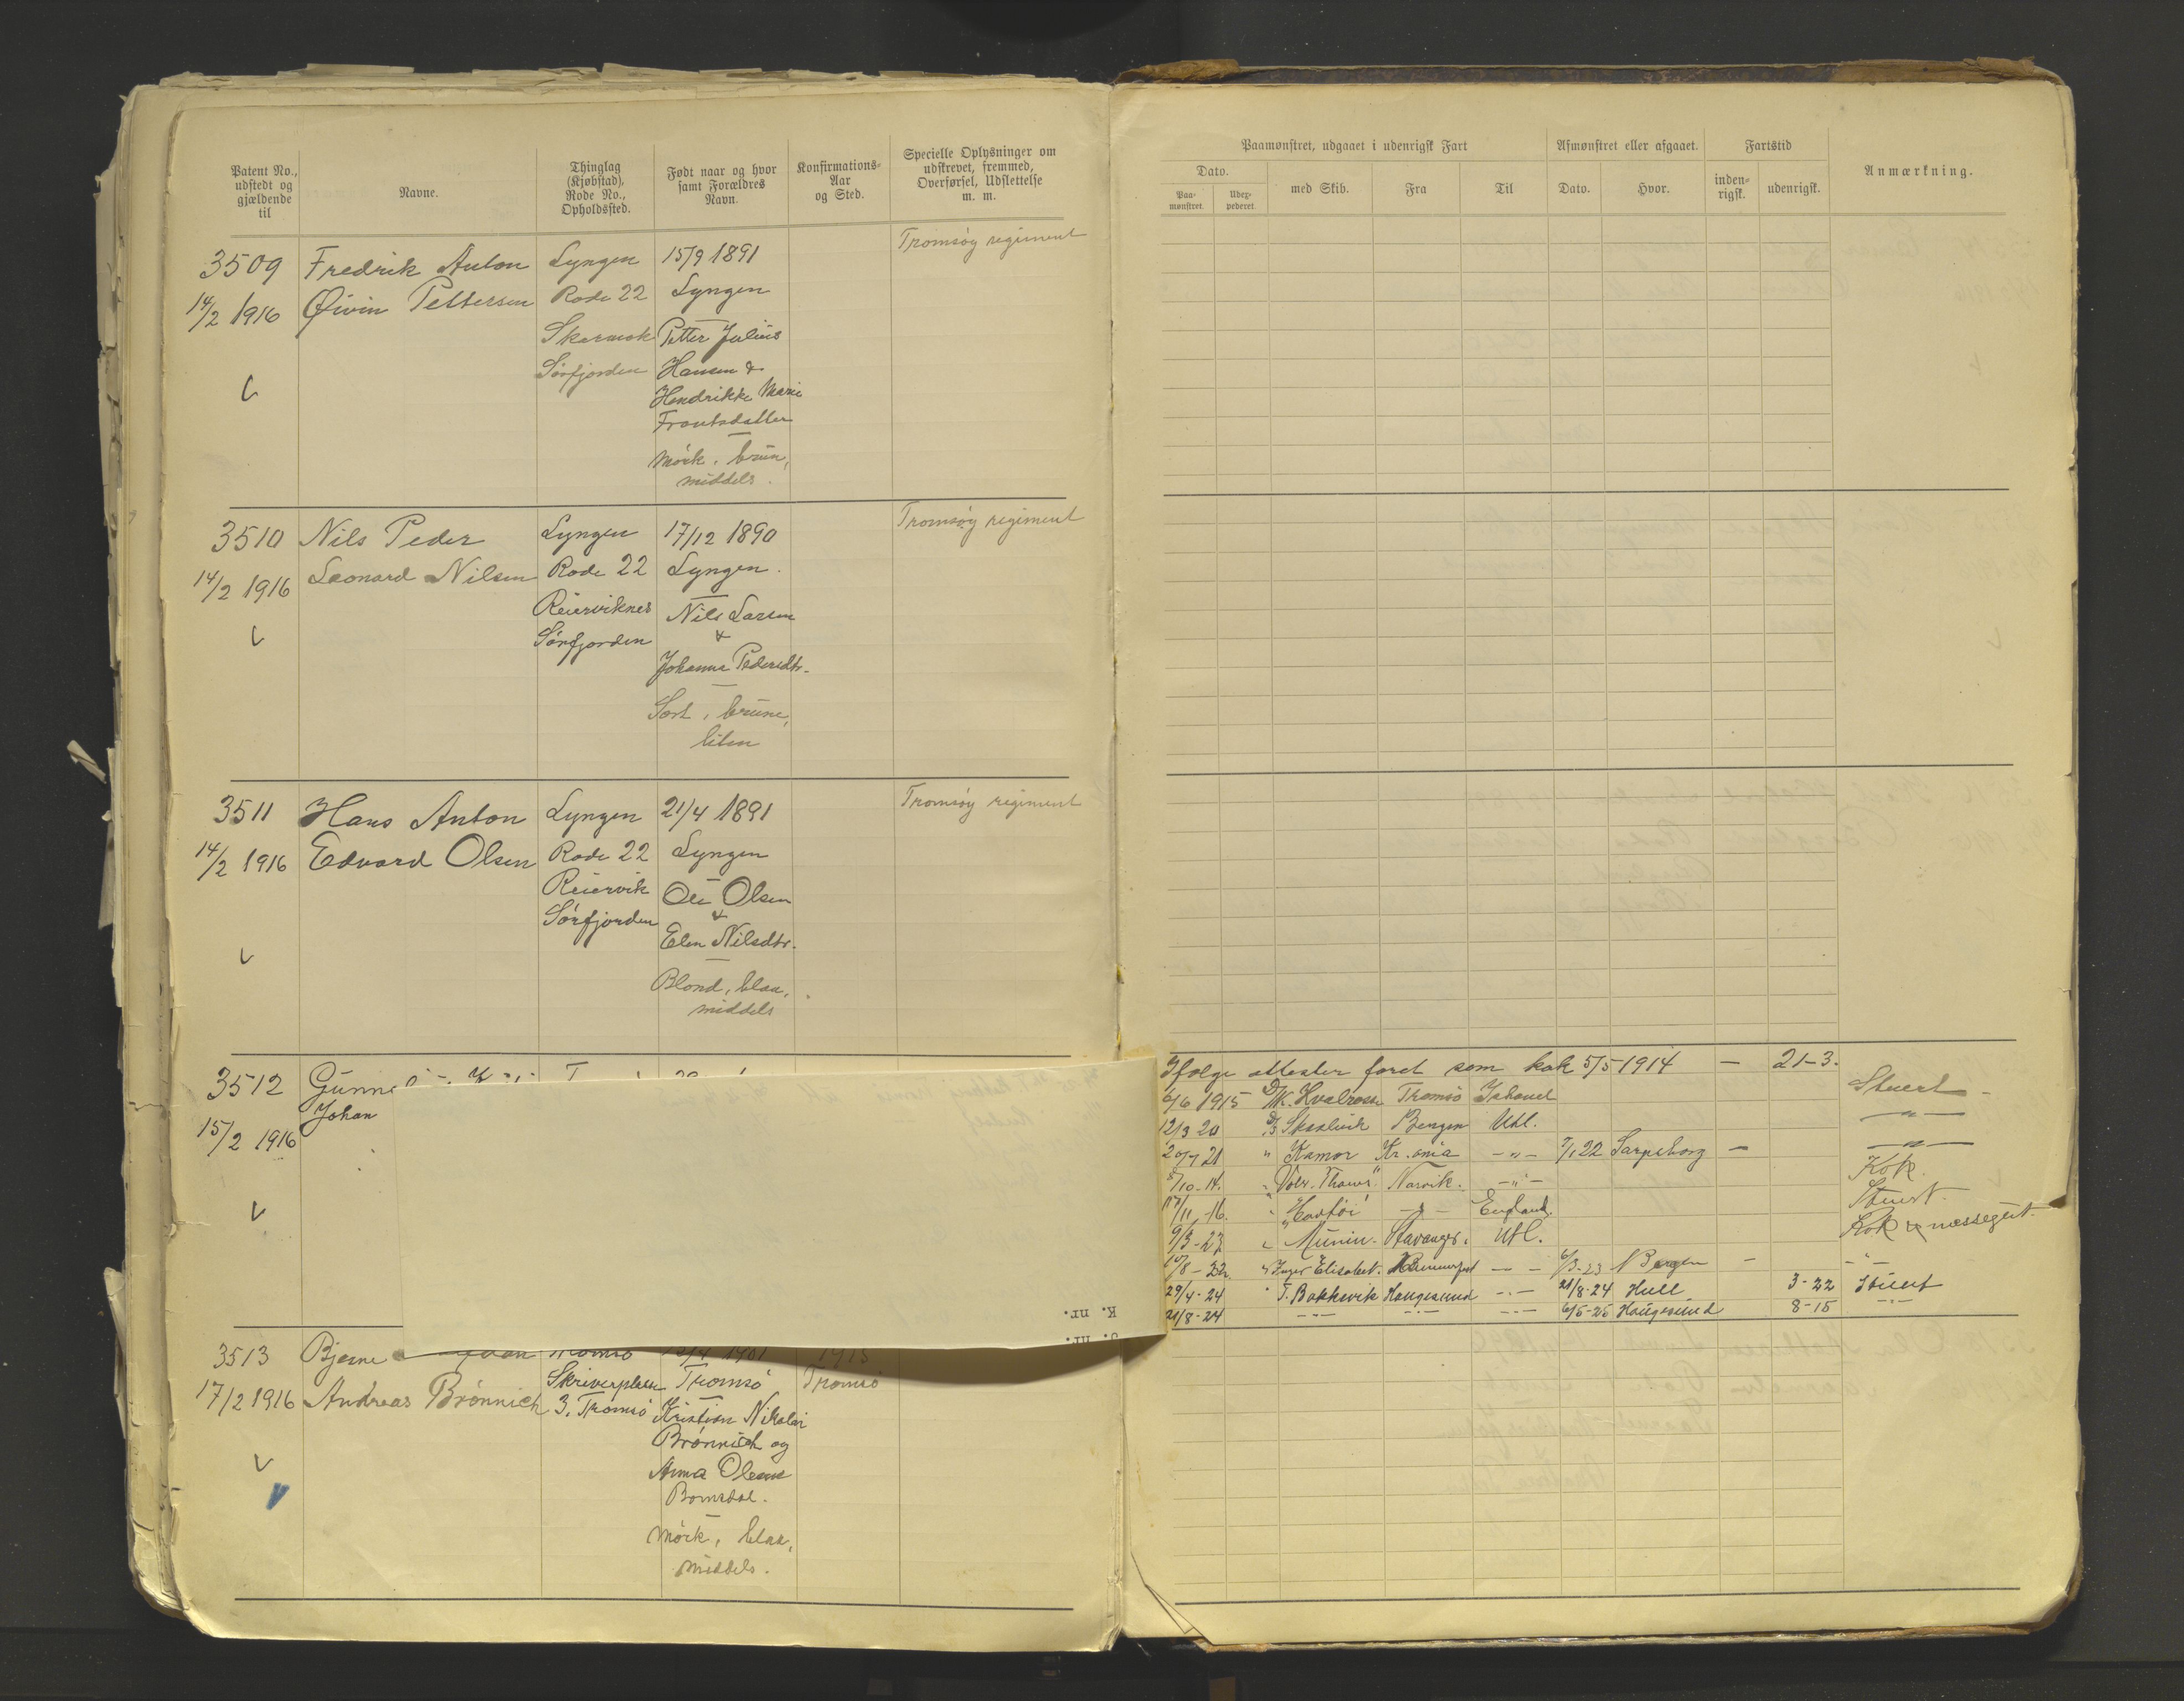 Patent No., udstedt og gjældende til
Navne.
Thinglag (Kjøbstad), Rode No., Opholdssted.
Født naar og hvor samt Forældres Navn.
Konfirmations-Aar og Sted.
Specielle Oplysninger om udskrevet, fremmed, Overførsel, Udslettelse m. m.
3509
14/2 1916
Fredrik Anton
Øivin Pettersen
Lyngen
Rode 22
Sörfjorden
15/9 1891
Lyngen
Petter Julius
Hansen &
Hendrikke Marie
Frantsdatter
Mörk, brun,
middels.
Tromsöy regiment
3510
14/2 1916
Nils Peder
Leonard Nilsen
Lyngen
Rode 22
Reierviknes
Sörfjorden
17/12 1890
Lyngen.
Nils Larsen
&
Johanna Pedersdtr.
Sort, brune,
liten
Tromsöy regiment
3511
14/2 1916
Hans Anton
Edvard Olsen
Lyngen
Rode 22
Reiervik
Sörfjorden
21/4 1891
Lyngen
Ole Olsen
&
Elen Nilsdtr.
Blond, blaa,
middels
Tromsöy regiment
3512
15/2 1916
Johan
K. nr.
J. nr.
3513
17/2 1916
Bjarne
Andreas Brönnich
Tromsö
Skriverplass
3. Tromsö
1901
Tromsö
Kristian Nikolai
Brönnich og
Anna Olesne
Bomsdal.
Mörk, blaa,
middels.
1915
Tromsö
Paamønstret, udgaaet i udenrigsk Fart
Afmønstret eller afgaaet.
Fartstid
Anmærkning.
Dato.
Paa-mønstret.
Udex-pederet.
med Skib.
Fra
Til
Dato.
Hvor.
inden-rigsk.
udenrigsk.
Ifølge attester faret som kok 5/5 1914 — 21-3.
6/6 1915 M/K. Hvalrossen Tromsö Ishavet Stuert
12/3 20 D/S Bergen Utl. —"—
21 " Kamor Kr.ania —"— 7/1 22 Sarpsborg — —"—
5/10-14. " Narvik. —"— Kok.
17/11-16. " Havtor —"— England. Stuert.
9/3-23 " Munin. Stavanger. Utl. Kok & messegut.
10/8-22. " Inger Elisabet. Hammerfest —"— 6/3-23 Bergen — —"—
29/4-24 " T. Bakkevik Haugesund —"— 21/8-24 Hull 3-22 Stuert
21/8-24 —"— —"— —"— 6/5-25 Haugesund 8-15 —"—